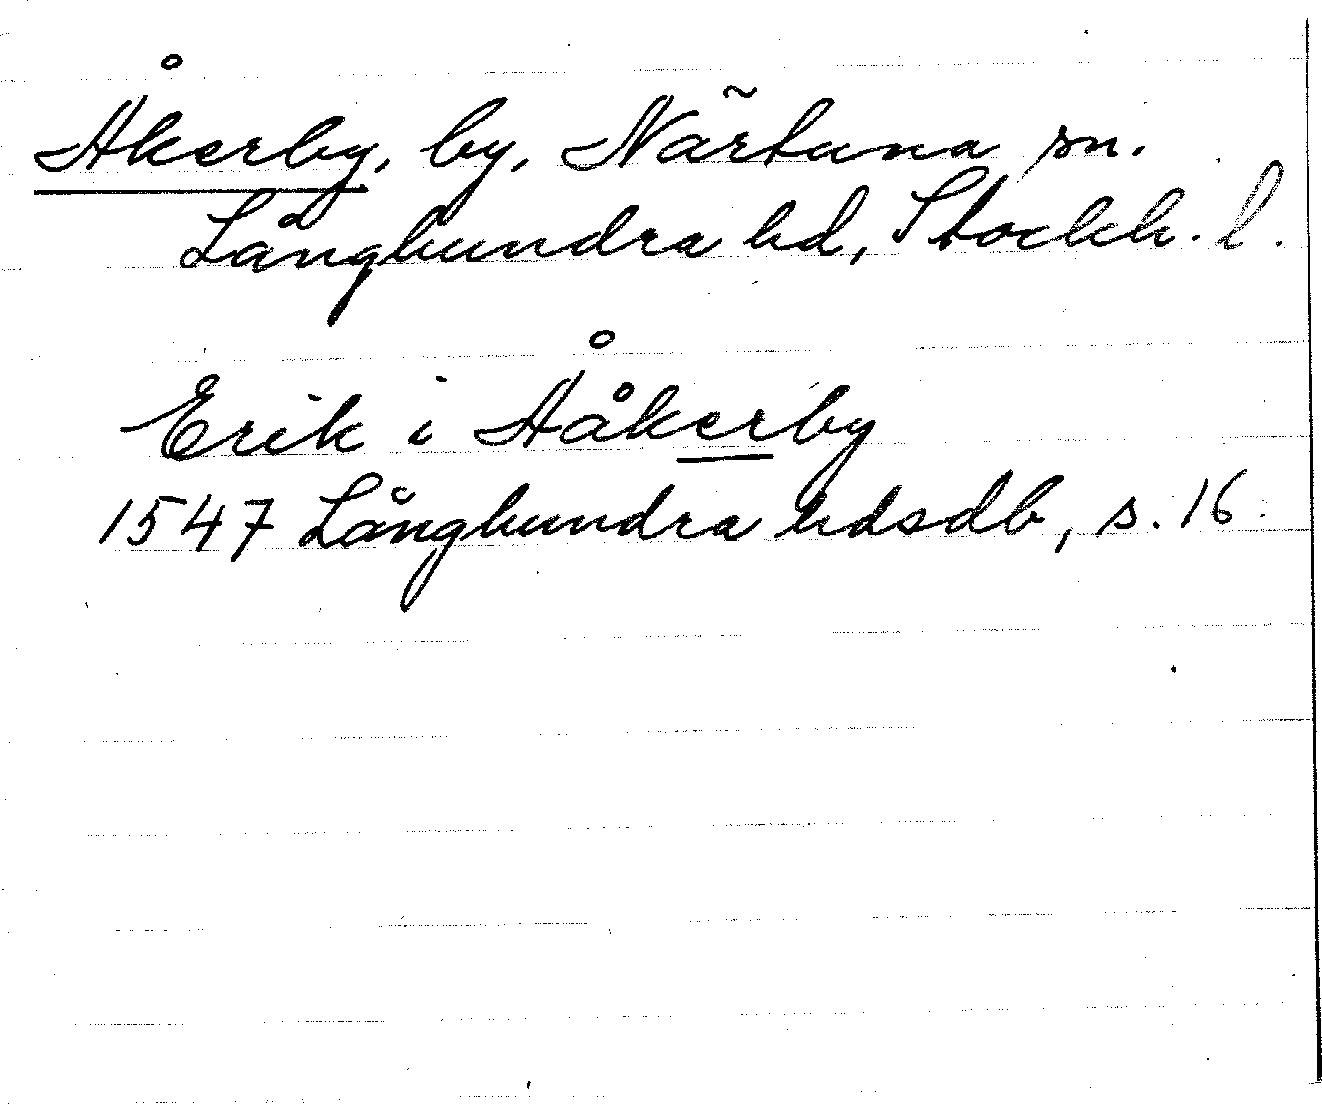 Åkerby, by, Närtuna sn.
Långhundra hd, Stockh. l.
Erik i Ååkerby
1547 Långhundra hdsdb, s. 16